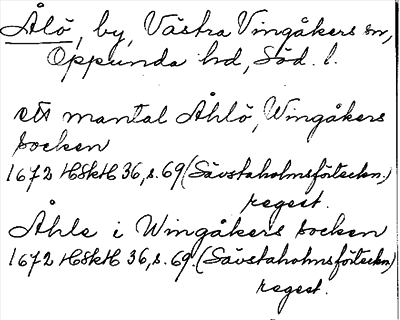 Ålö, by, Västra Vingåkers sn,
Oppunda hd, Söd. l.
ett mantal Åhlö, Wingåkers
socken
1672 HSkH 36, s. 69 (Sävstaholmsförteckn.)
regest.
Åhle i Wingåkers socken
1672 HSkH 36, s. 69. (Sävstaholmsförteckn.)
regest.